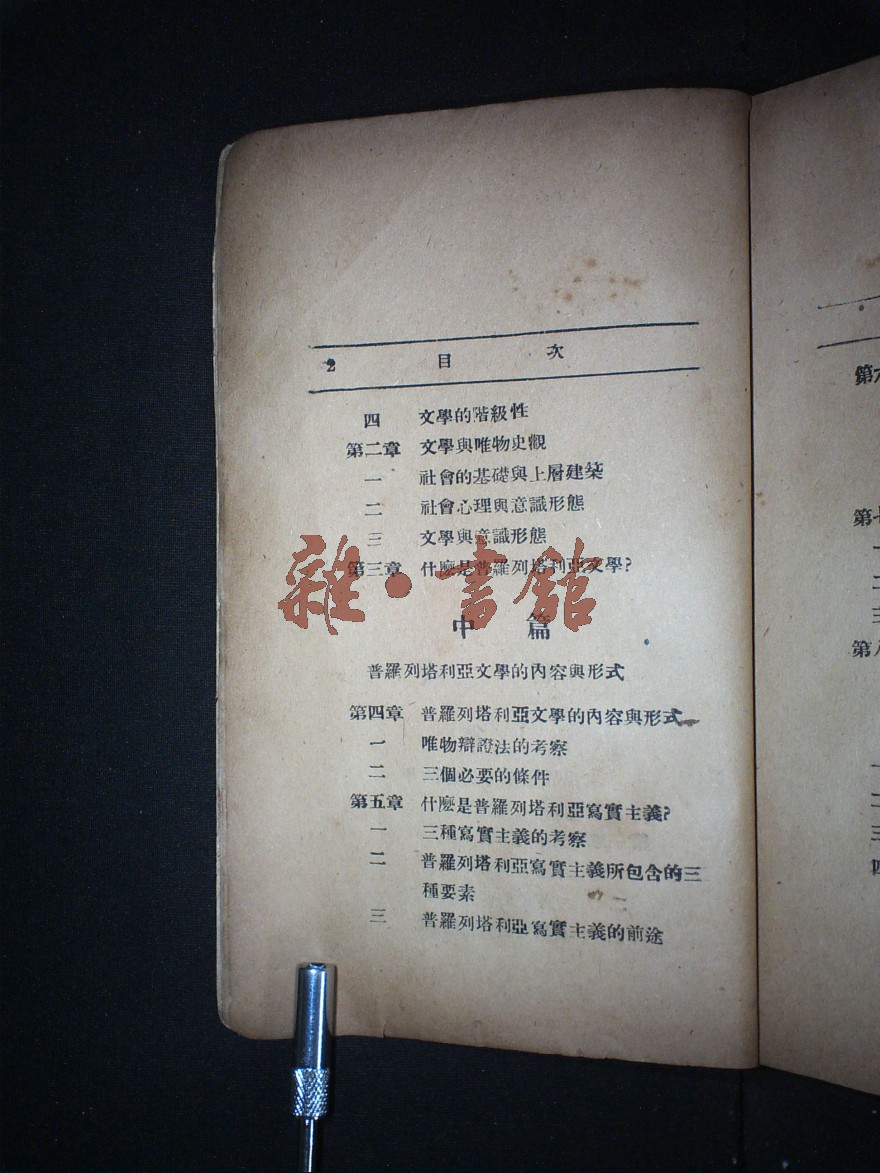 2 目 次
四 文學的階級性
第二章 文學與唯物史觀
一 社會的基礎與上層建築
二 社會心理與意識形態
三 文學與意識形態
第三章 什麼是普羅列塔利亞文學?
雜·書館
中 篇
普羅列塔利亞文學的內容與形式
第四章 普羅列塔利亞文學的內容與形式
一 唯物辯證法的考察
二 三個必要的條件
第五章 什麼是普羅列塔利亞寫實主義?
一 三種寫實主義的考察
二 普羅列塔利亞寫實主義所包含的三
種要素
三 普羅列塔利亞寫實主義的前途
第
第
一
二
三
第
一
二
三
四